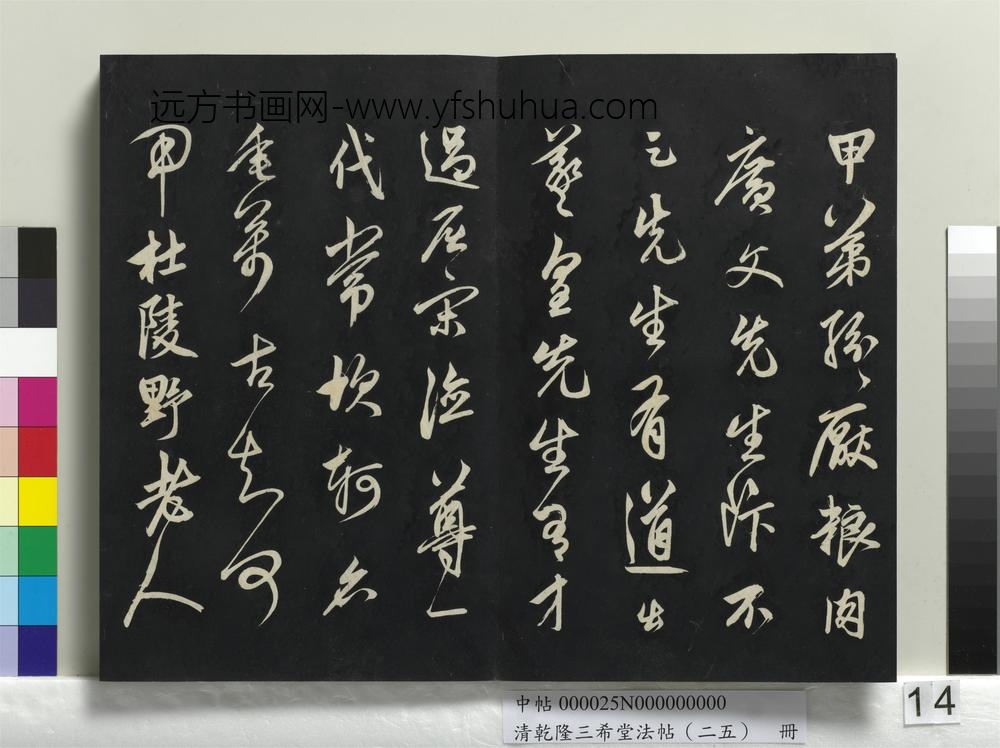 远方书画网-www.yfshuhua.com
甲第紛紛厭粮肉
廣文先生飯不
足先生有道出
羲皇先生有才
過屈宋德尊一
代常坎軻名
垂萬古知何
用杜陵野老人
中帖000025N000000000
清乾隆三希堂法帖（二五） 冊
14